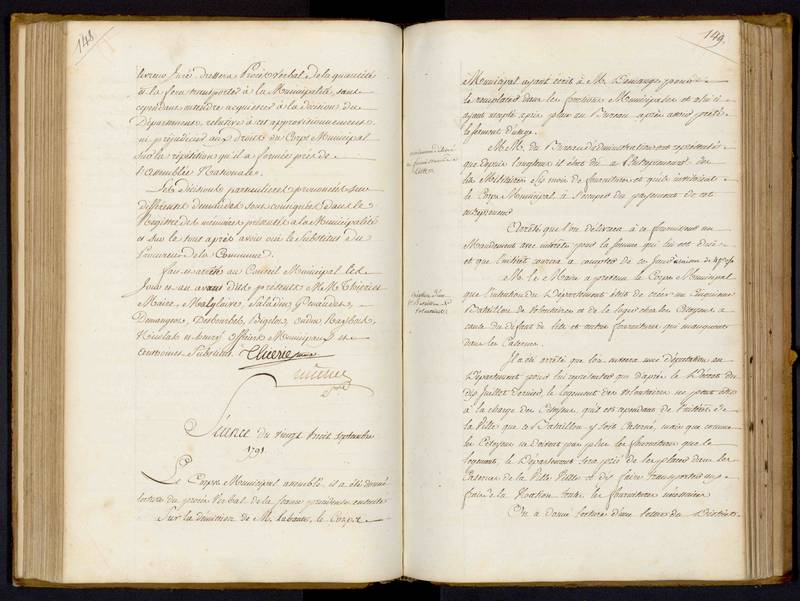 148
livreur Juré dressera Procès verbal de la quantité
et la fera transporter à la Municipalité, sauf
cependant entendre acquiescer à la décision du
Département, relative à cet approvisionnement
ni préjudicier aux droits du Corps Municipal
sur la répétition qu'il a formée près de
l'Assemblée Nationale.
Les décisions particulières prononcées sur
différentes demandes sont consignées dans le
Registre des mémoires présentés à la Municipalité
et sur le tout après avoir ouï le Substitut du
Procureur de la Commune.
Fait et arrêté au Conseil Municipal les
Jour et an avant dits présents M.M. Thieriet
Maire, Malglaive, Saladin,
Demangeot, Desbourbes, Bigelot,
Nicolas et henry officiers Municipaux et
Substitut. Thieriet maire
Séance du vingt huit septembre
1791.
Le Corps Municipal assemblé, il a été donné
lecture du procès Verbal de la séance précédente ensuite
Sur la démission de M. Labaute, le Corps
149.
Municipal ayant écrit à M. Boulanger pour
le remplacer dans les fonctions Municipales et celui ci
ayant accepté a pris place au Bureau après avoir prêté
le serment d'usage.
M.M. du Bureau d'administration ont représenté
que depuis longtems il était dû à l'Entrepreneur des
lits Militaires six mois de fournitures et qu'ils invitoient
le Corps Municipal à s'occuper du payement de cet
entrepreneur
Arrêté que l'on délivrera à ce fournisseur un
Mandement avec intérêts pour la somme qui lui est due
et que l'intérêt courra à compter de ce jour à raison de
M. le Maire a prévenu le Corps Municipal
que l'intention du Département étoit de créer un cinquieme
Bataillon de volontaires et de le loger chez les Citoyens à
cause du défaut de lits et autres fournitures qui manquent
dans les Casernes.
Il a été arrêté que l'on enverra une députation au
Département pour lui représenter que d'après le Décret du
dix Juillet dernier, le logement des volontaires ne peut être
à la charge des Citoyens, qu'il est cependant de l'intérêt de
la Ville que ce Bataillon y soit Caserné, mais que comme
les Citoyens ne doivent pas plus les fournitures que le
logement, le Département sera prié de les placer dans les
Casernes de la Ville Vieille et d'y faire transporter aux
frais de la Nation toutes les fournitures nécessaires
On a donné lecture d'une lettre du District
création d'un
5e Bataillon de
volontaires